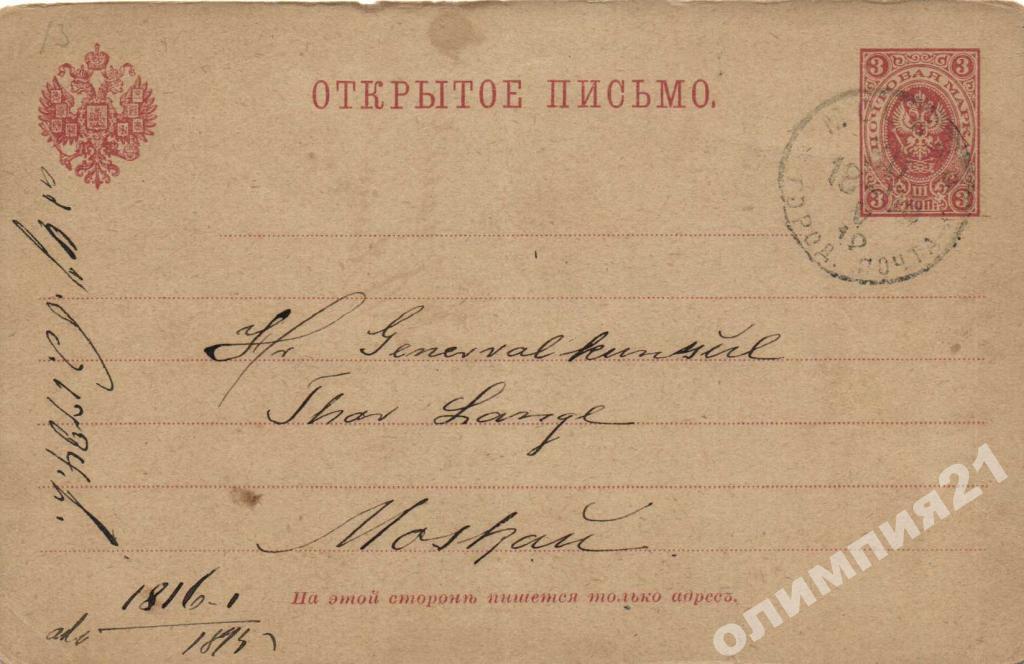 13
ОТКРЫТОЕ ПИСЬМО.
3 3
ПОЧТОВАЯ МАРКА
III
3 КОП. 3
18
10
ГОРОД. ПОЧТА
Hr Generralkunsŭl
Thor Lange
Moskaŭ
На этой сторонѣ пишется только адресъ.
1816-1
1895
олимпия21